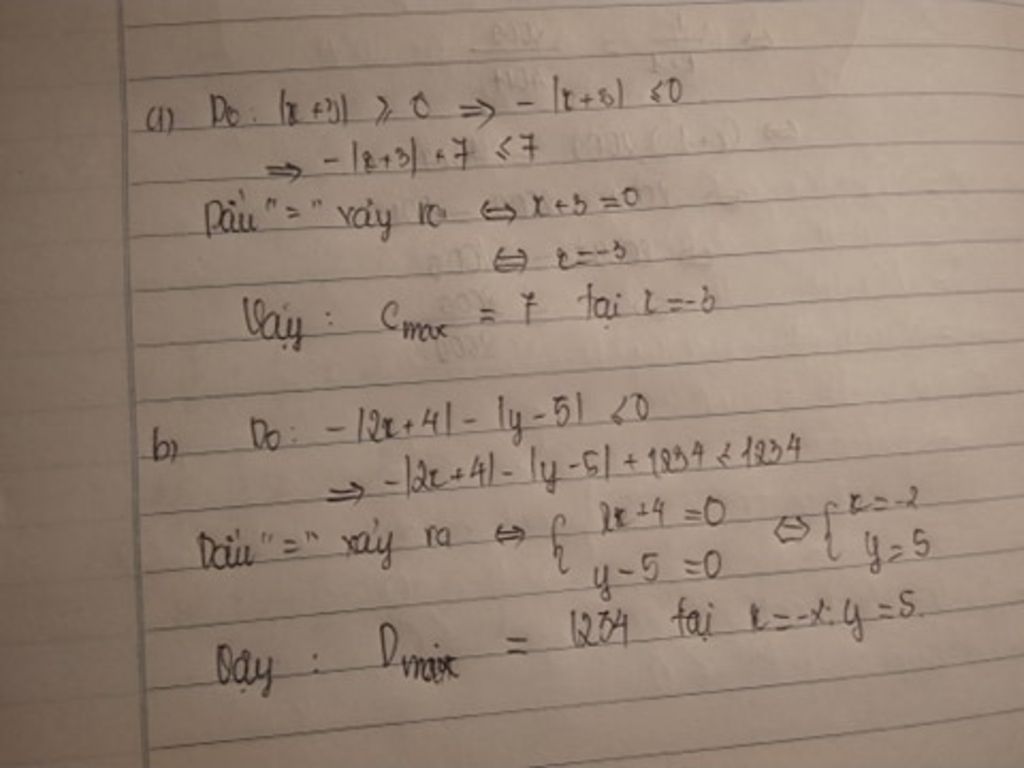 a) Do: |x+3| ⩾ 0 ⇒ - |x+3| ⩽0
⇒ - |x+3| + 7 ⩽ 7
Dấu "=" xảy ra ⇔ x+3 =0
⇔ x=-3
Vậy : Cmax = 7 tại x=-3
b) Do: - |2x+4| - |y-5| ⩽0
⇒ - |2x+4| - |y-5| + 1234 ⩽ 1234
Dấu "=" xảy ra ⇔ { 2x+4 =0 ⇔ { x=-2
y-5 =0 y=5
Vậy : Dmax = 1234 tại y=5